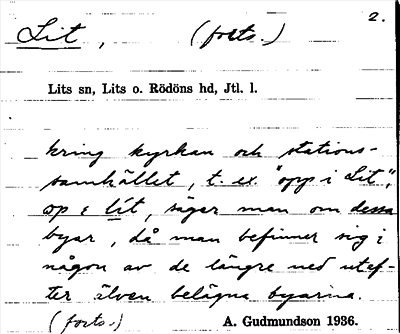 2.
Lit, (forts.)
Lits sn, Lits o. Rödöns hd, Jtl. l.
kring kyrkan och stations-
samhället, t. ex. "opp i Lit",
op i lít, säger man om dessa
byar, då man befinner sig i
någon av de längre ned utef-
ter älven belägna byarna.
(forts.) A. Gudmundson 1936.